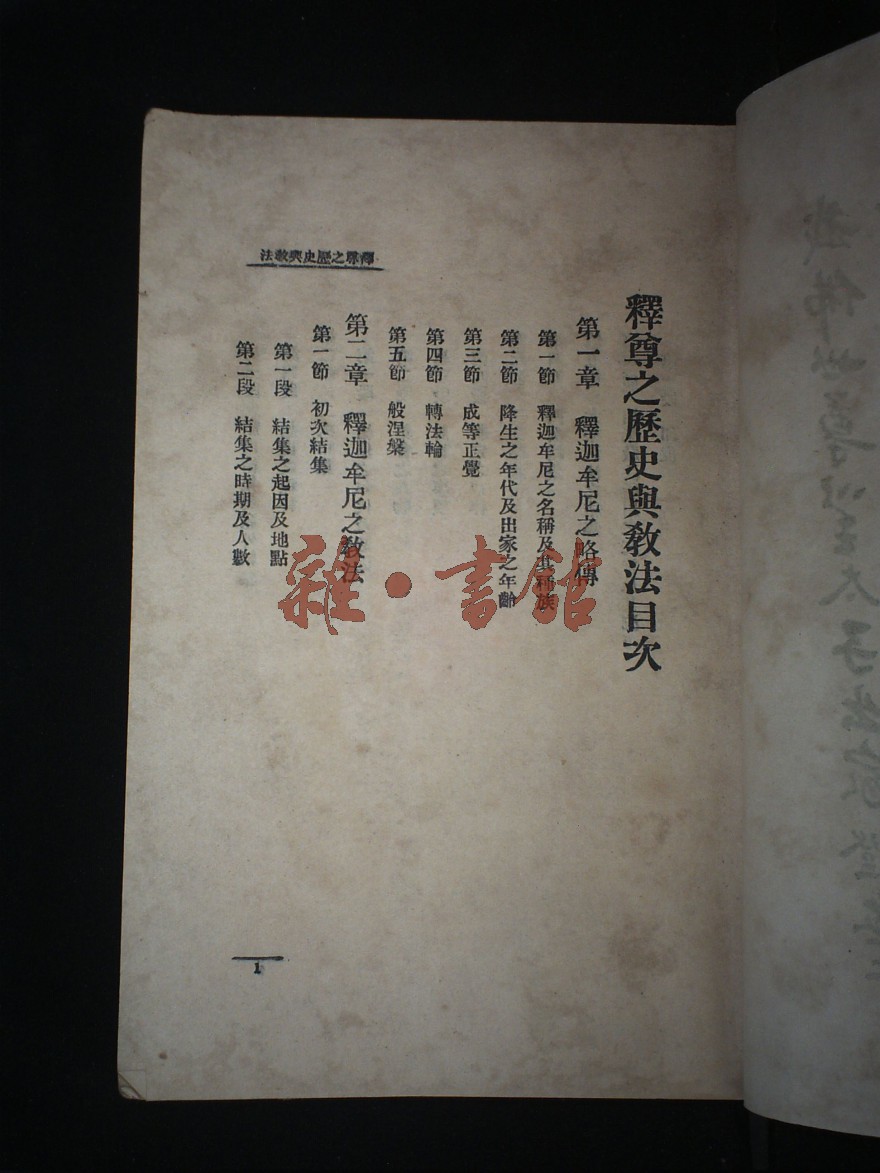 釋尊之歷史與教法目次
第一章　釋迦牟尼之略傳
第一節　釋迦牟尼之名稱及其種族
第二節　降生之年代及出家之年齡
第三節　成等正覺
第四節　轉法輪
第五節　般涅槃
第二章　釋迦牟尼之教法
第一節　初次結集
第一段　結集之起因及地點
第二段　結集之時期及人數
釋尊之歷史與教法
1
雜·書館